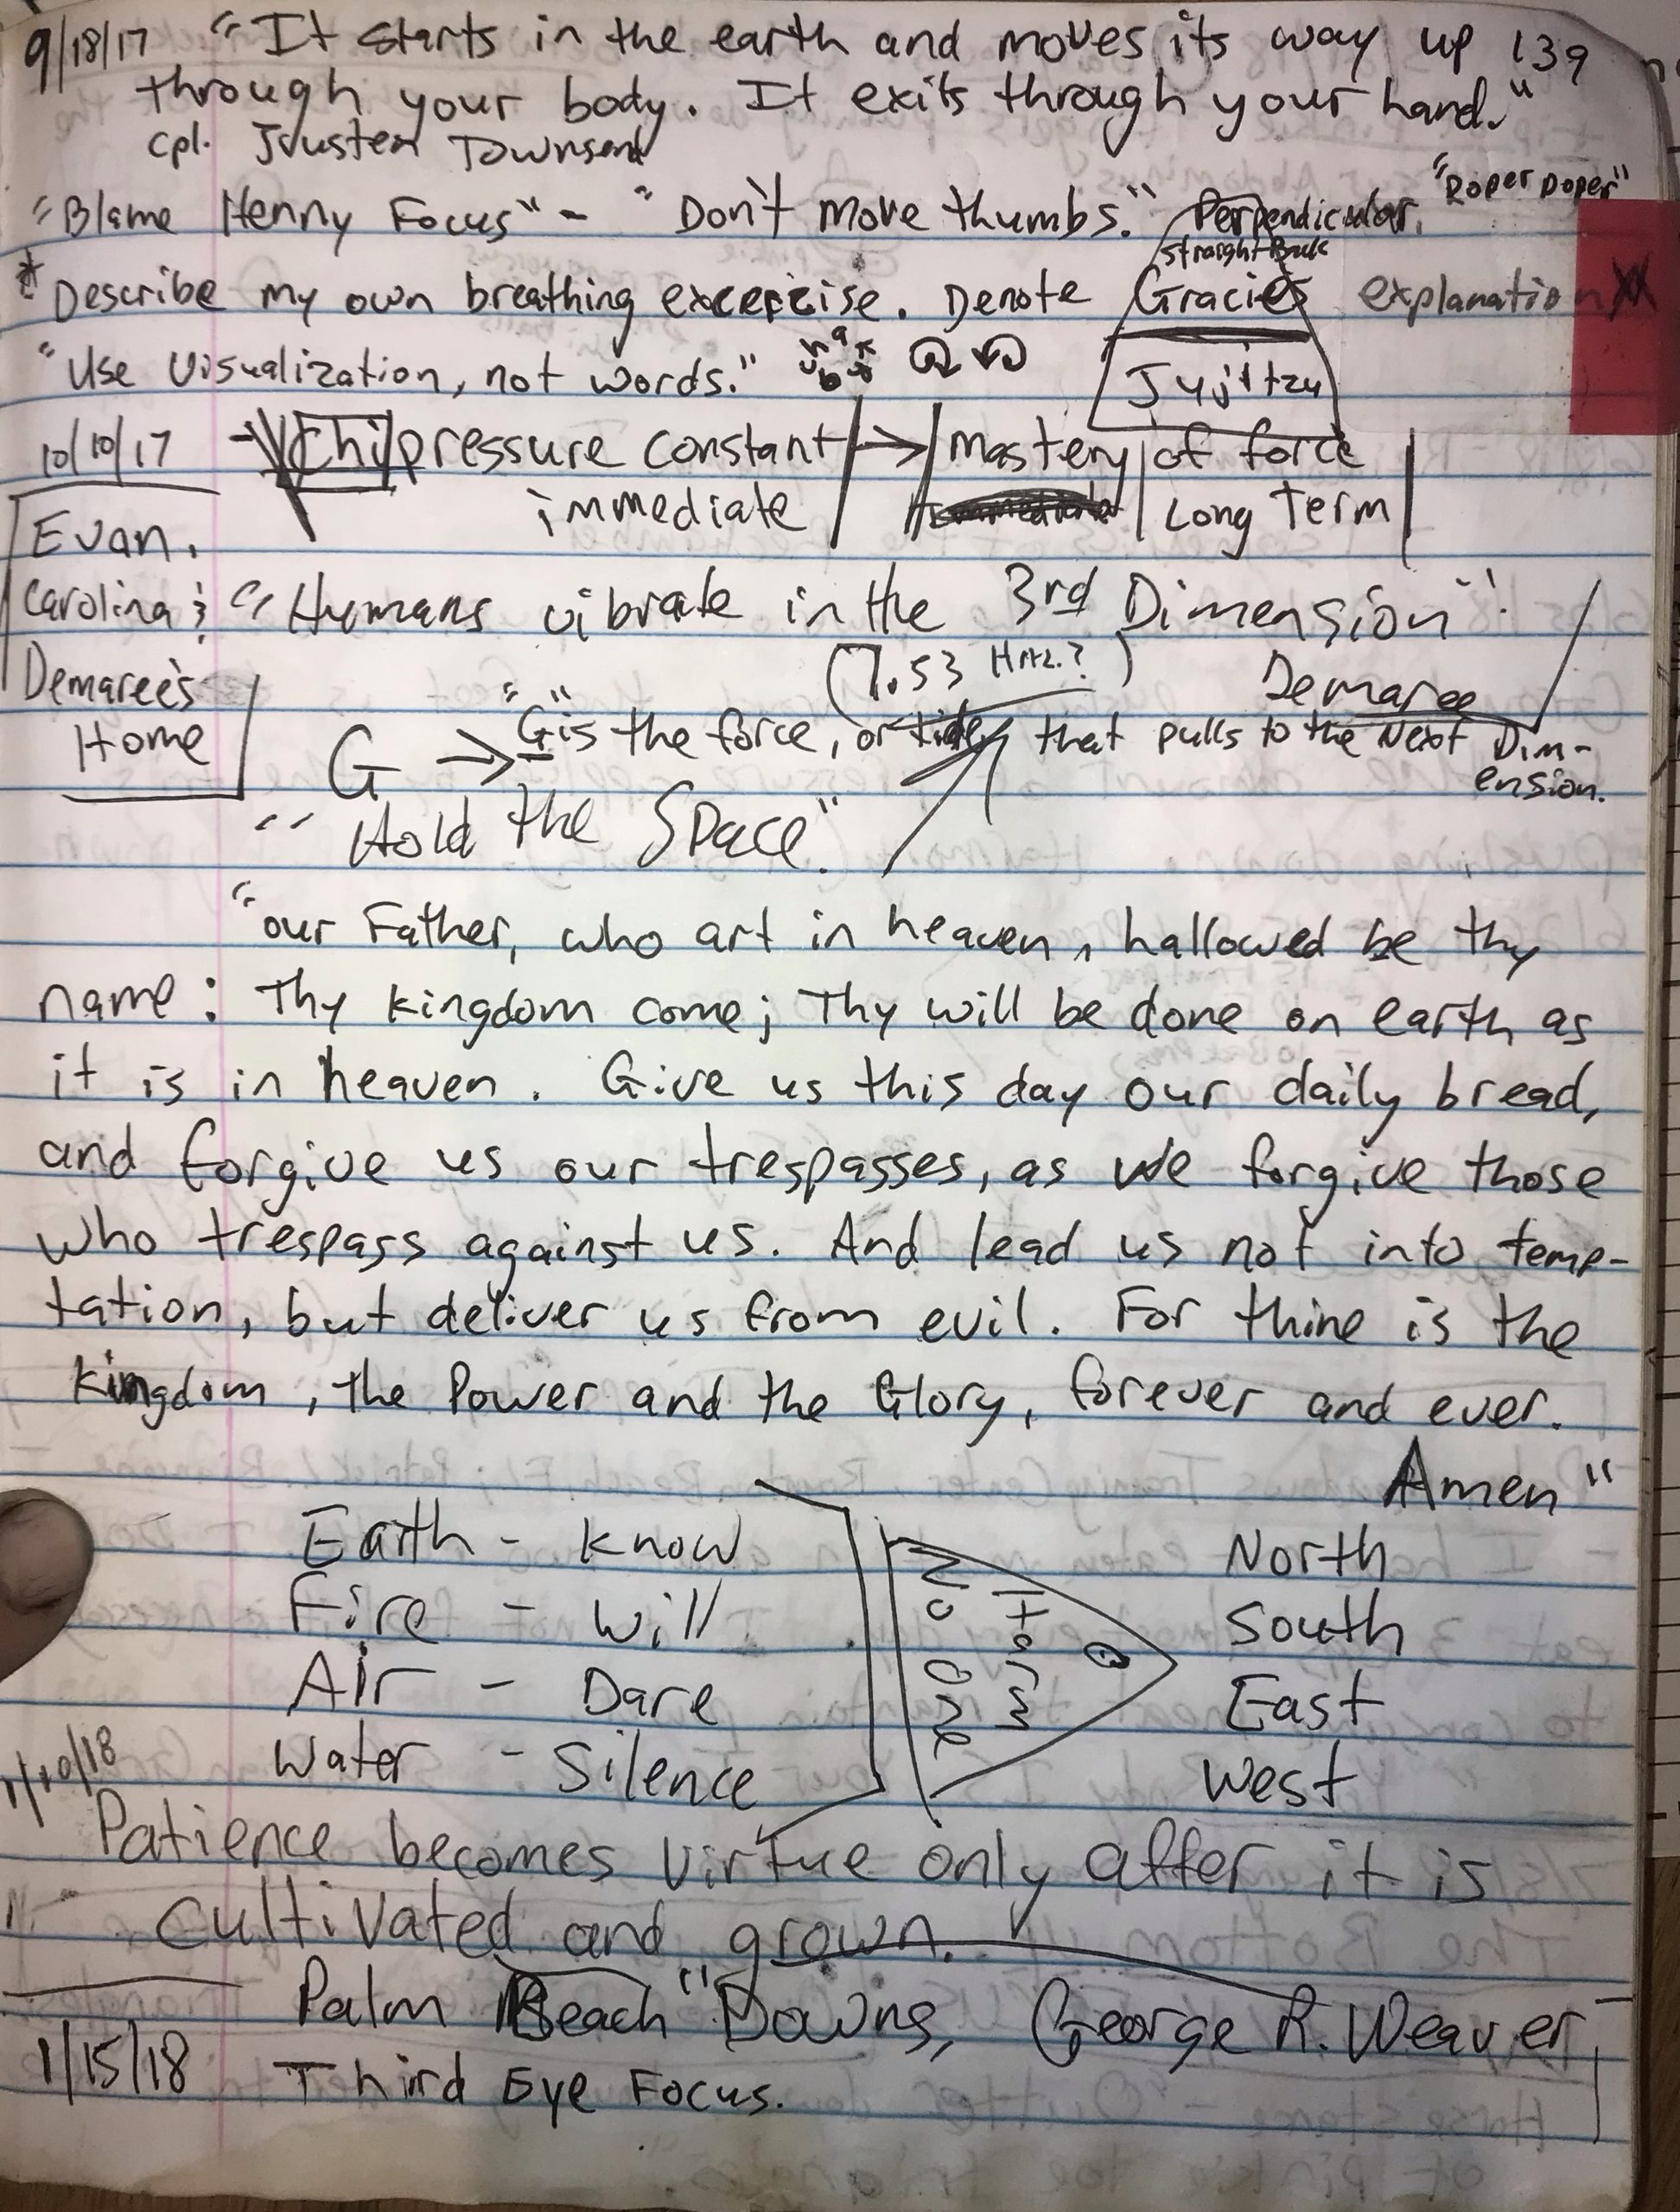 9/18/17 "It starts in the earth and moves its way up 139
through your body. It exits through your hand."
cpl. Townsend
"Roper Doper"
"Blame Henny Focus" - "Don't move thumbs." Perpendicular.
Straight Back
* Describe my own breathing excercise. Denote Gracies explanation
"Use visualization, not words."
Jujitzu
10/10/17 Chi pressure constant → Mastery of force
immediate Long Term
Evan,
Carolina &
Demaree's
Home
"Humans vibrate in the 3rd Dimension".
(7.53 Hrtz.?) Demaree
G → "G" is the force, or tide, that pulls to the Next Dim-
ension.
"Hold the Space."
"our Father, who art in heaven, hallowed be thy
name: Thy kingdom come; Thy will be done on earth as
it is in heaven. Give us this day our daily bread,
and forgive us our trespasses, as we forgive those
who trespass against us. And lead us not into temp-
tation, but deliver us from evil. For thine is the
kingdom, the Power and the Glory, forever and ever.
Amen"
Earth - Know North
Fire - Will South
Air - Dare East
Water - Silence West
1/10/18
Patience becomes virtue only after it is
cultivated and grown.
Palm Beach Downs, George R. Weaver,
1/15/18 Third Eye Focus.